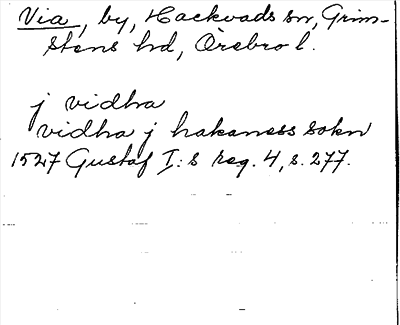 Via, by, Hackvads sn, Grim-
stens hd, Örebro l.
j vidha
vidha j hakaness sokn
1527 Gustaf I:s reg. 4, s. 277.